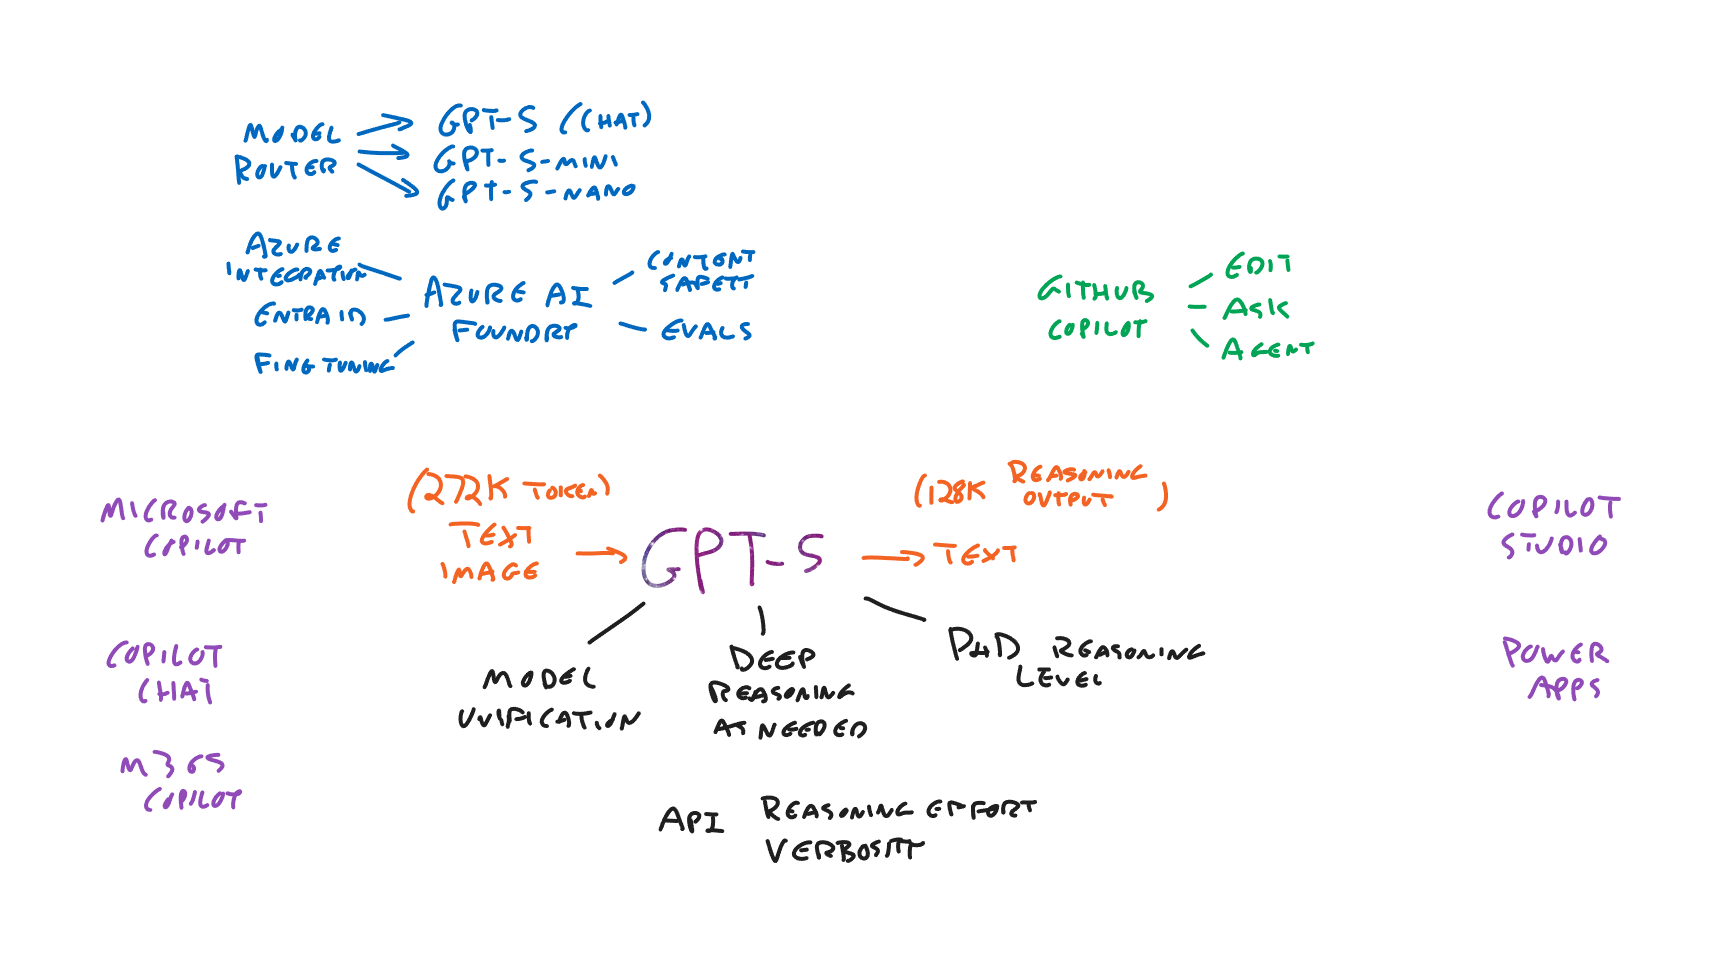 MODEL
ROUTER
GPT-5 (CHAT)
GPT-5-MINI
GPT-5-NANO
AZURE
INTEGRATION
ENTRA ID
FINE TUNING
AZURE AI
FOUNDRY
CONTENT
SAFETY
EVALS
GITHUB
COPILOT
EDIT
ASK
AGENT
MICROSOFT
COPILOT
COPILOT
CHAT
M365
COPILOT
(272K TOKEN)
TEXT
IMAGE
GPT-5
(128K REASONING
OUTPUT)
TEXT
MODEL
UNIFICATION
DEEP
REASONING
AS NEEDED
PHD REASONING
LEVEL
API
REASONING EFFORT
VERBOSITY
COPILOT
STUDIO
POWER
APPS